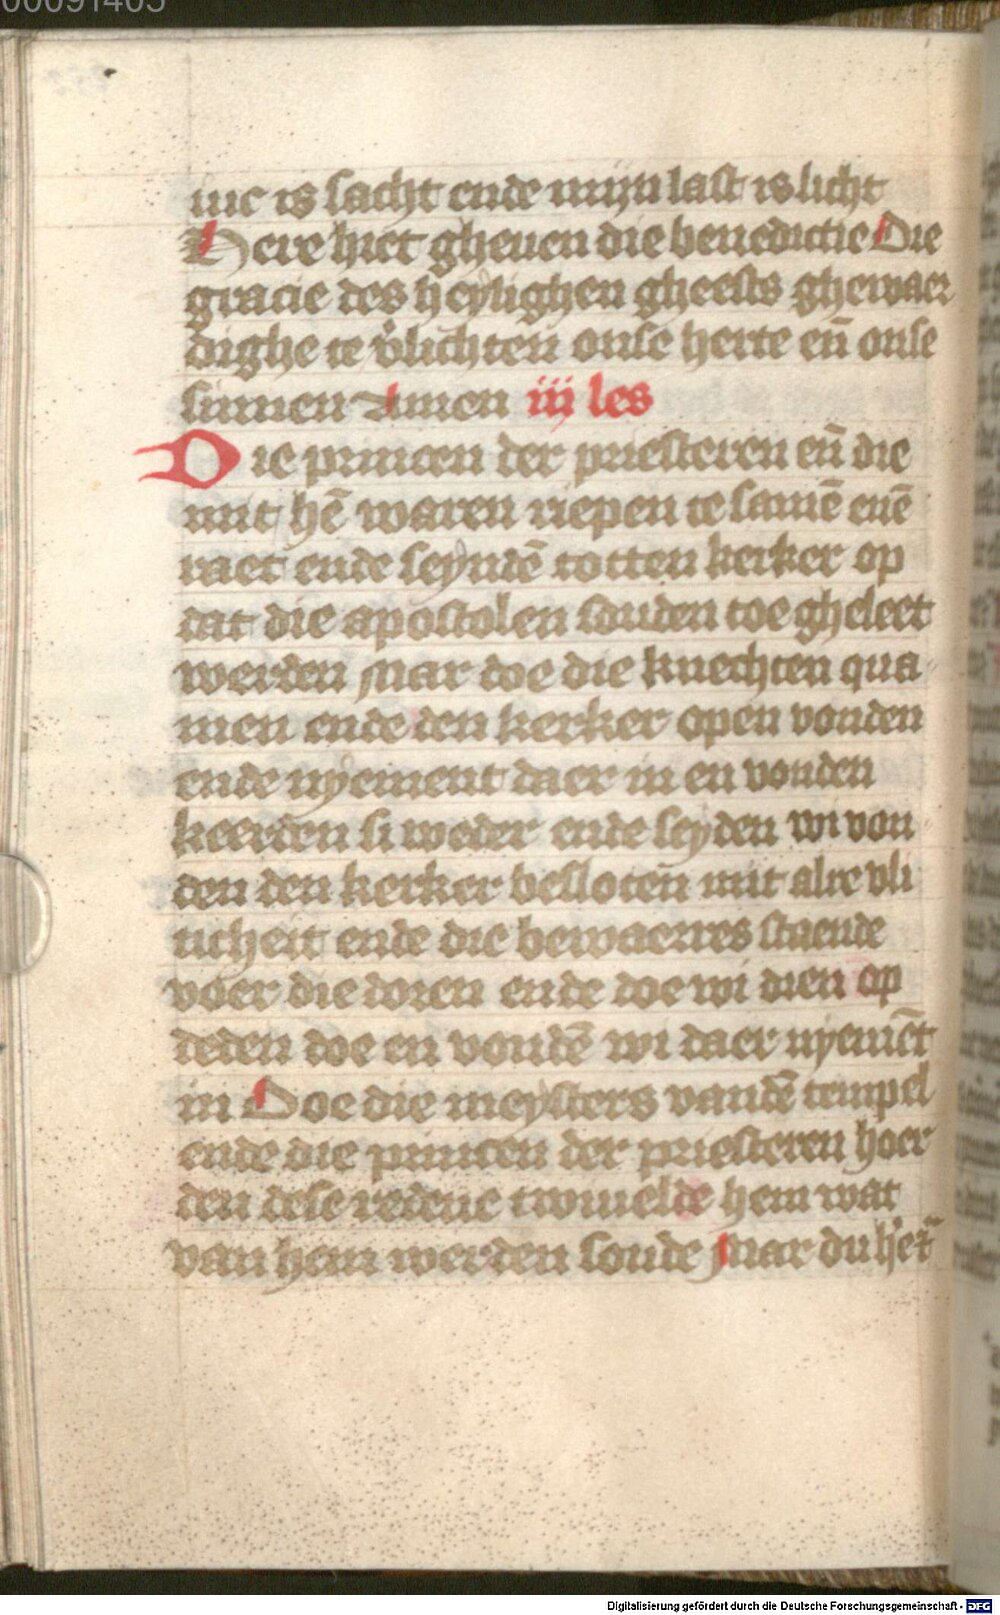 00091405
iuc is sacht ende mijn last is licht
Here hiet gheuen die benedictie Die
gracie des heylighen gheests ghewaer
dighe te v̉lichten onse herte en̄ onse
sinnen Amen iij les
Die princen der priesteren en̄ die
mit hē waren riepen te samē enē
raet ende seyndē totten kerker op
dat die apostolen souden toe gheleet
werden Mar doe die knechten qua
men ende den kerker open vonden
ende nyement daer in en vonden
keerden si weder ende seyden wi von
den den kerker besloten mit alre vli
ticheit ende die bewaerres staende
voer die doren ende doe wi dien op
deden doe en vondē wi daer nyemēt
in Doe die meysters vandē tempel
ende die princen der priesteren hoer
den dese redene twiuelde hem wat
van hem werden soude Mar du
Digitalisierung gefördert durch die Deutsche Forschungsgemeinschaft - DFG